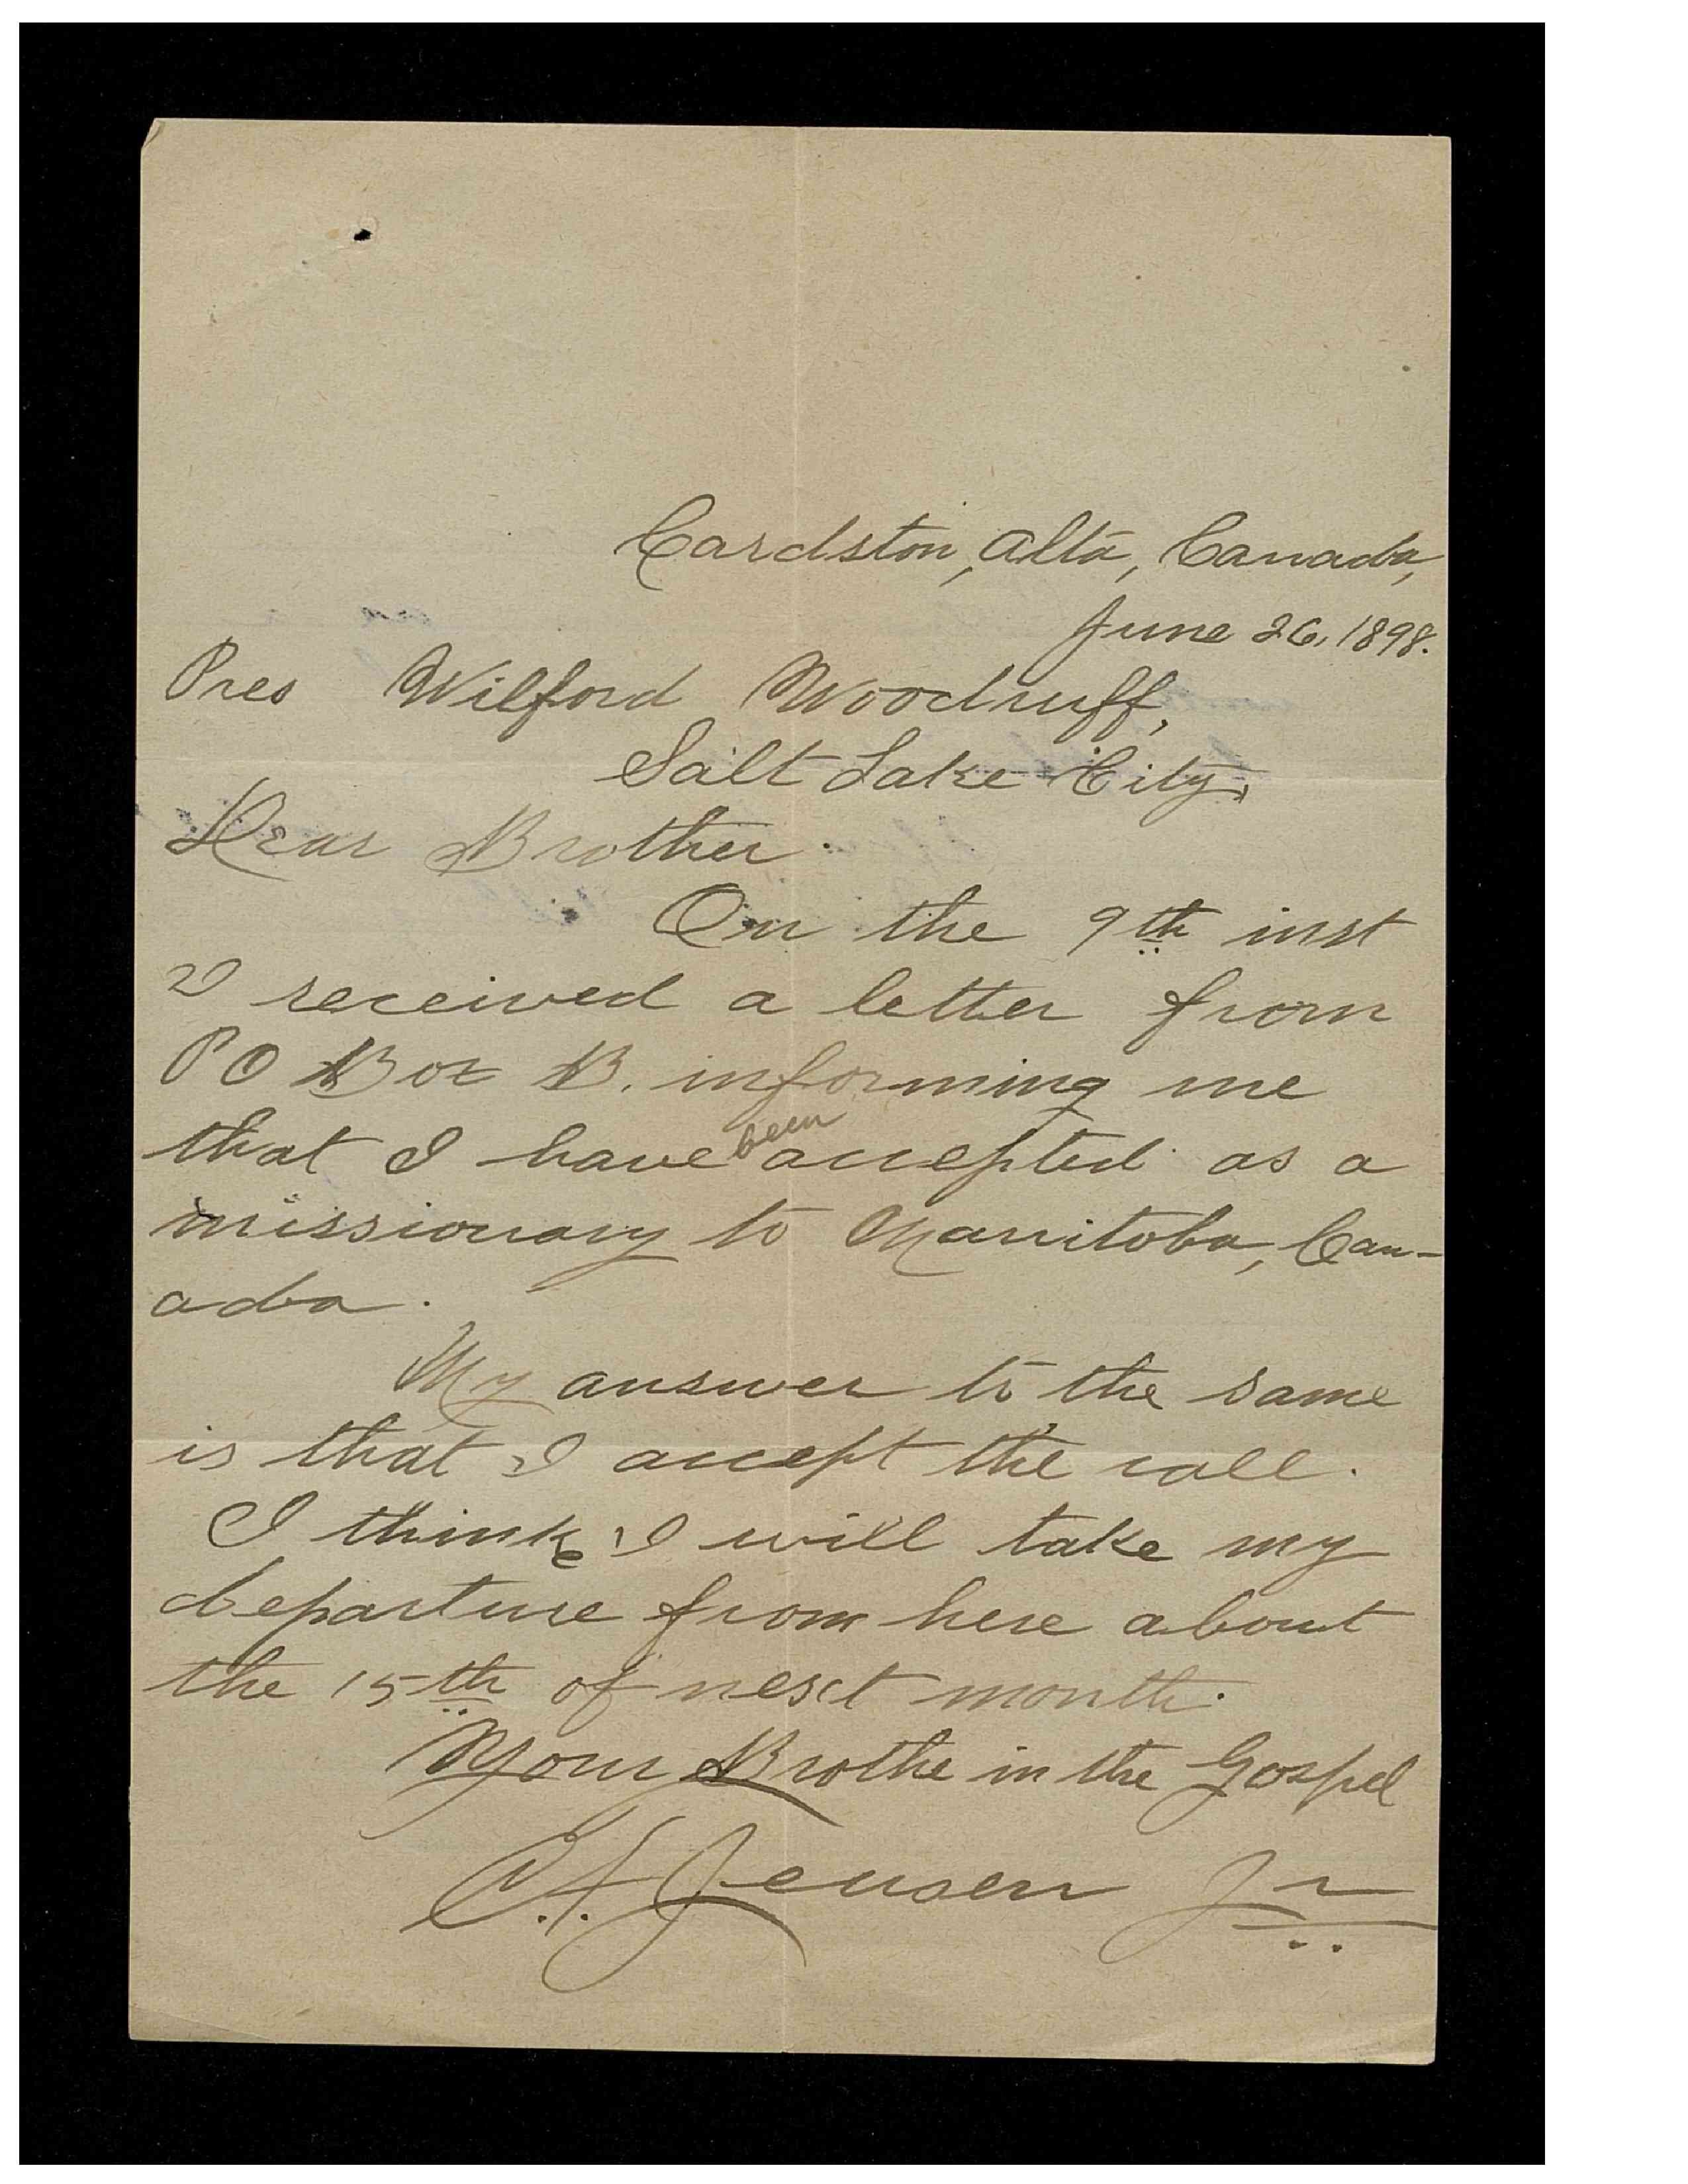 Cardston, Alta, Canada,
June 26, 1898.
Pres Wilford Woodruff,
Salt Lake City,
Dear Brother.
On the 9th inst
I received a letter from
P O Box B. informing me
been
that I have accepted as a
missionary to Manitoba, Can-
ada.
My answer to the same
is that I accept the call.
I think I will take my
departure from here about
the 15th of next month.
Your Brothe in the Gospel
Jensen Jr